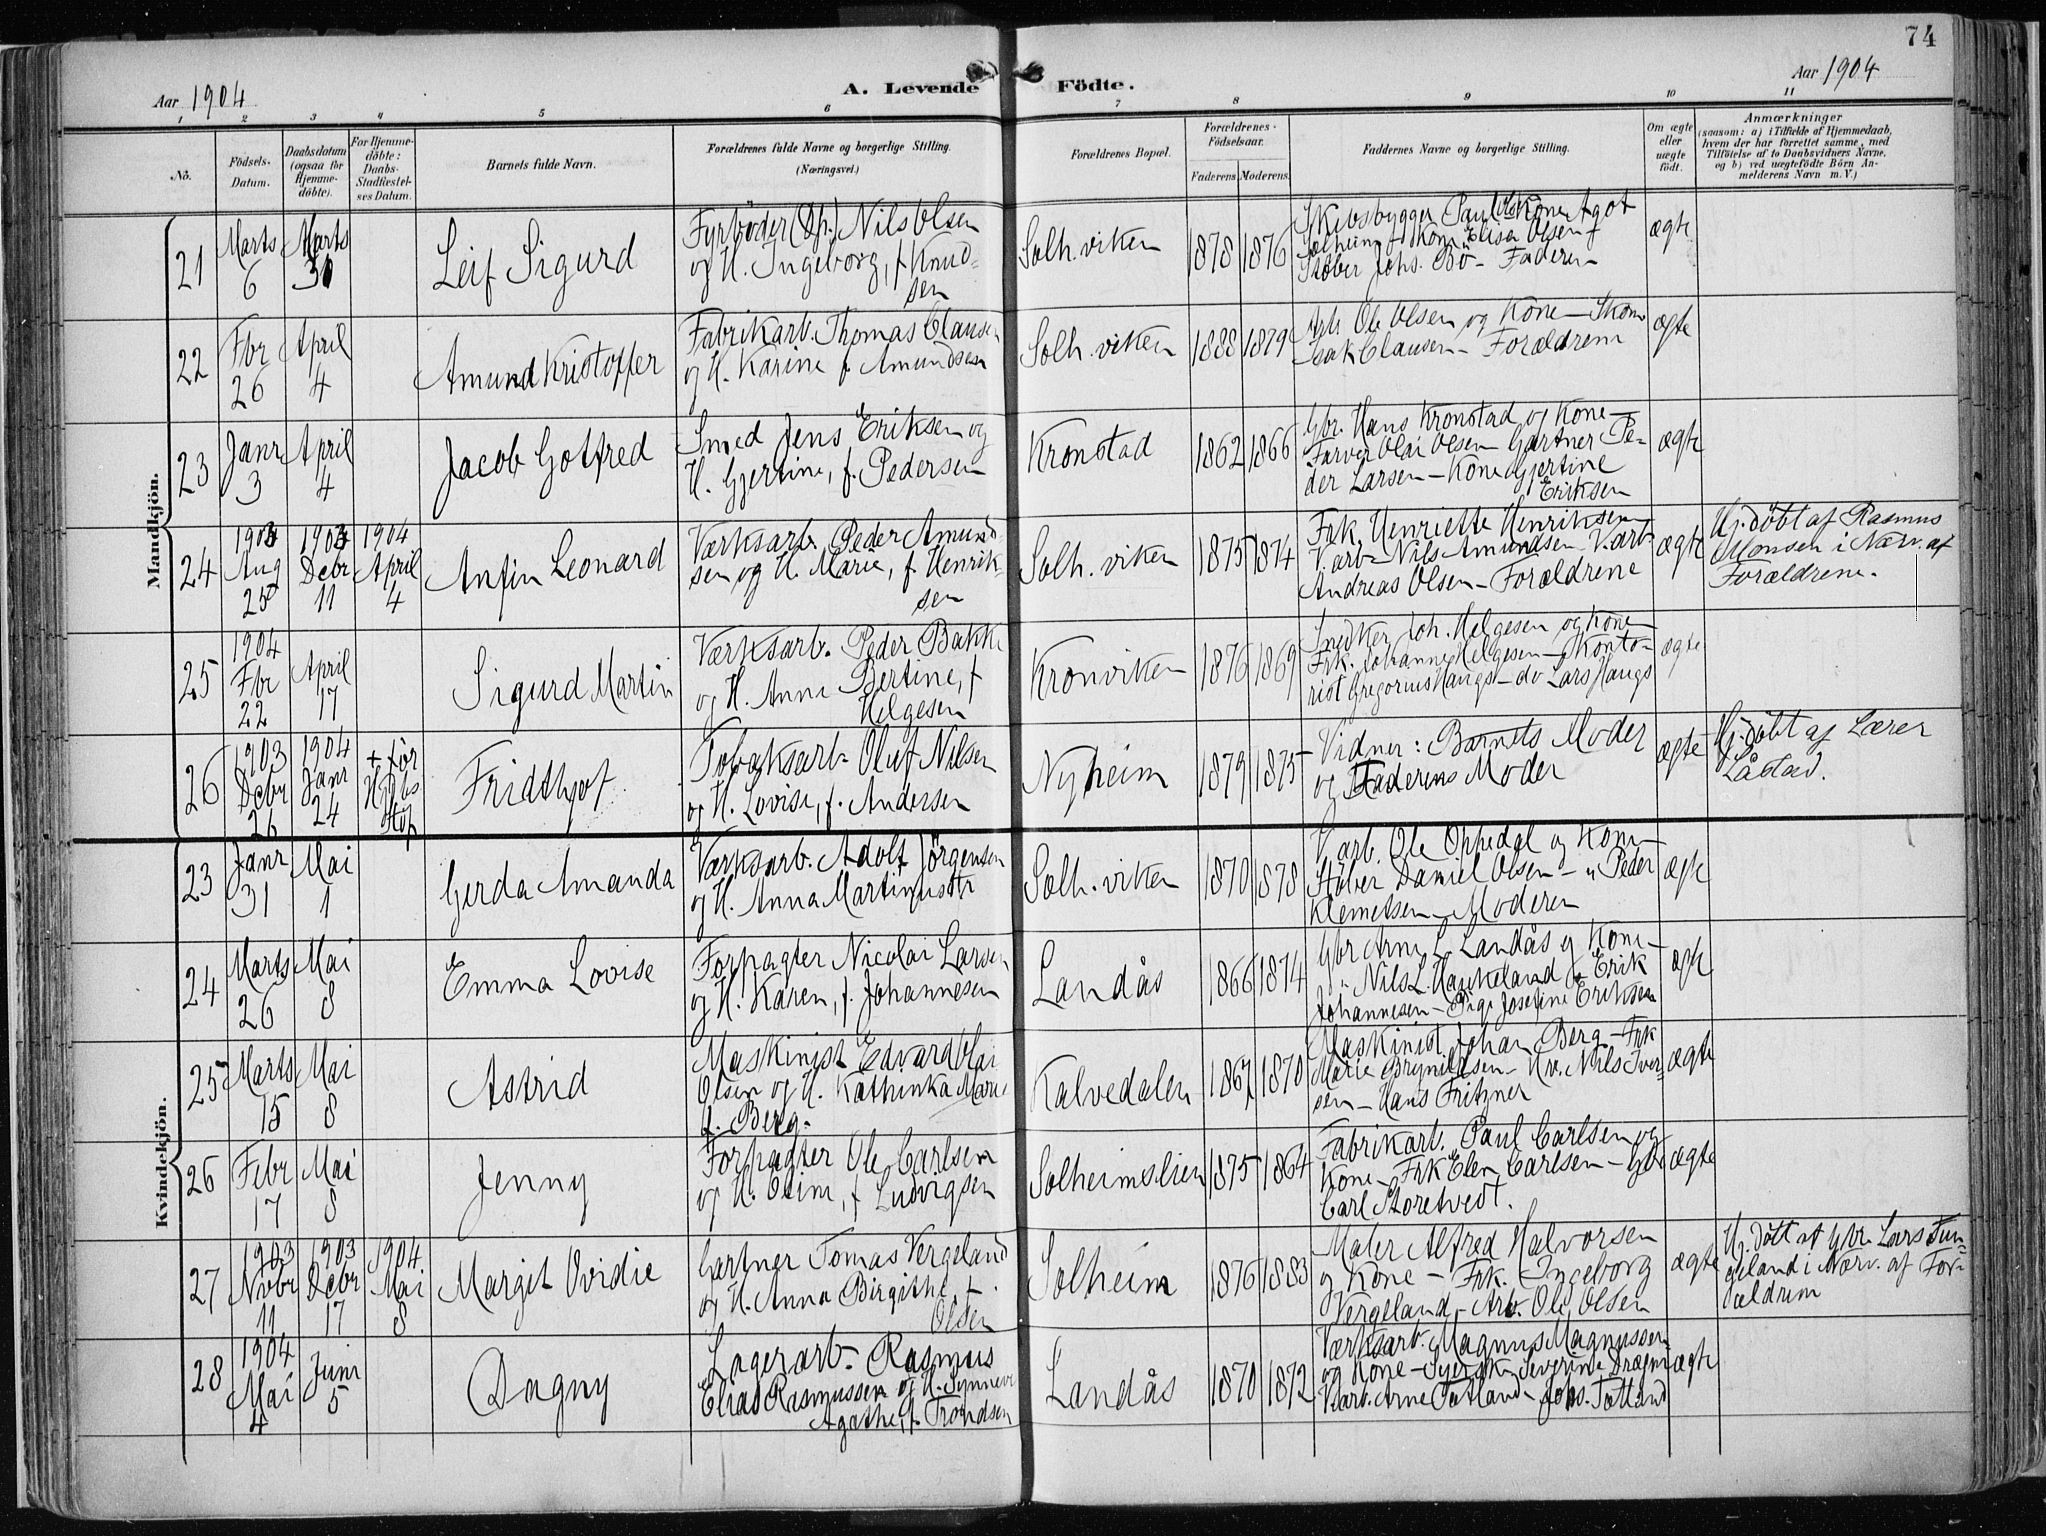 74
Aar 1904
A. Levende Födte.
Aar 1904
1 2 3 4 5 6 7 8 9 10 11
No.
Födsels-
Datum.
Daabsdatum
(ogsaa for
Hjemme-
döbte).
For Hjemme-
döbte:
Daabs-
Stadfæstel-
ses Datum.
Barnets fulde Navn.
Forældrenes fulde Navne og borgerlige Stilling.
(Næringsvei.)
Forældrenes Bopæl.
Forældrenes
Födselsaar.
Faderens Moderens.
Faddernes Navne og borgerlige Stilling.
Om ægte
eller
uægte
født.
Anmærkninger
(saasom: a) i Tilfælde af Hjemmedaab,
hvem der har forrettet samme, med
Tilföielse af to Daabsvidners Navne,
og b) ved uægtefödte Börn An-
melderens Navn m. V.)
Mandkjön.
21
Marts
6
Marts
31
Leif Sigurd
Fyrböder (Dp.) Nils Olsen
og H. Ingeborg, f. Knud-
sen
Solh.viken
1878 1876
Skibsbygger Paul Kone Agot
Solheim Elisa Olsen
Støber Johs. Bö - Faderen
ægte
22
Fbr
26
April
4
Amund Kristoffer
Fabrikarb. Thomas Clausen
og H. Karine f. Amundsen
Solh. viken
1888 1879
Ole Olsen og Kone - Skom.
Isak Clausen - Forældrene
ægte
23
Janr
3
April
4
Jacob Gotfred
Smed Jens Eriksen og
H. Gjertine, f. Pedersen
Kronstad
1862 1866
Gbr. Hans Kronstad og Kone -
Farver Olai Olsen Gartner Pe-
der Larsen - Kone Gjertine
Eriksen
ægte
24
1903
Aug
25
1903
Dcbr
11
1904
April
4
Anfin Leonard
Værksarb. Peder Amund
sen og H. Marie, f. Henrik-
sen
Solh. viken
1875 1874
Frk. Henriette Henriksen
V.arb. Nils Amundsen V.arb
Andreas Olsen - Forældrene
ægte
Hj.döbt af Rasmus
Monsen i Nærv. af
Forældrene.
25
1904
Fbr
22
April
17
Sigurd Martin
Værksarb. Peder Bakke
og H. Anna Bertine, f
Helgesen
Kronviken
1876 1869
Snedker Joh. Helgesen og Kone
Frk. Johanne Helgesen - Konto-
rist Gregorius Haugs - do Lars Haugs
ægte
26
1903
Dcbr
26
1904
Janr
24
+ før
Fridthjof
Tobaksarb. Oluf Nilsen
og H. Lovise, f. Andersen
Nyheim
1879 1875
Vidner: Barnets Moder
og Faderens Moder
ægte
Hj.döbt af Lærer
Låstad.
Kvindekjön.
23
Janr
31
Mai
1
Gerda Amanda
Værksarb. Adolf Jörgensen
og H. Anna Martinusdtr
Solh. viken
1870 1878
V.arb. Ole Oppedal og Kone -
Støber Daniel Olsen - " Peder
Klemetsen - Moderen
ægte
24
Marts
26
Mai
8
Emma Lovise
Forpagter Nicolai Larsen
og H. Karen, f. Johannesen
Landås
1866 1874
Gbr Arne L. Landås og Kone -
" Nils L. Haukeland Erik
Johannesen - Pige Josefine Eriksen
ægte
25
Marts
15
Mai
8
Astrid
Maskinist Edvard Olai
Olsen og H. Kathinka Marie
f. Berg.
Kalvedalen
1867 1870
Maskinist Johan Berg - Frk
Marie Brynildsen - Nils Iver-
sen - Hans Fritzner
ægte
26
Febr
17
Mai
8
Jenny
Forpagter Ole Carlsen
og H. Oline, f. Ludvigsen
Solheimslien
1875 1864
Fabrikarb. Paul Carlsen og
Kone - Frk Elen Carlsen - Gbr
Carl Storetvedt.
ægte
27
1903
Nvbr
11
1903
Dcbr
17
1904
Mai
8
Margit Ovidie
Gartner Tomas Vergeland
og H. Anna Birgithe f.
Olsen
Solheim
1876 1883
Maler Alfred Halvorsen
og Kone - Frk. Ingeborg
Vergeland - Arb. Ole Olsen
ægte
Hj. döbt af Gbr. Lars
i Nærv. af For-
ældrene
28
1904
Mai
4
Juni
5
Dagny
Lagerarb. Rasmus
Elias Rasmussen og H. Synneve
Agathe, f. Trondsen
Landås
1870 1872
Værksarb. Magnus Magnussen
og Kone - Severine
V.arb. Arne Tatland - Johs. Tatland
ægte